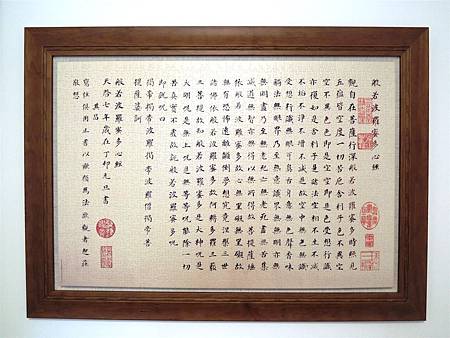 般若波羅蜜多心經
觀自在菩薩行深般若波羅蜜多時照見
五蘊皆空度一切苦厄舍利子色不異空
空不異色色即是空空即是色受想行識
亦復如是舍利子是諸法空相不生不滅
不垢不淨不增不減是故空中無色無
受想行識無眼耳鼻舌身意無色聲香味
觸法無眼界乃至無意識界無無明亦
無無明盡乃至無老死亦無老死盡無苦集
滅道無智亦無得以無所得故菩提薩埵
依般若波羅蜜多故心無罣礙無罣礙故
無有恐怖遠離顛倒夢想究竟涅槃三世
諸佛依般若波羅蜜多故阿耨多羅三藐
三菩提故知般若波羅蜜多是大神咒是
大明咒是無上咒是無等等咒能除一切
苦真實不虛故說般若波羅蜜多咒
即說咒曰
揭帝揭帝波羅揭帝波羅僧揭帝菩
提薩婆訶
般若波羅蜜多心經
天啓七年歲在丁卯元旦書
其昌
寫經俱用正書以歐顏為法欲觀者起莊
敬想